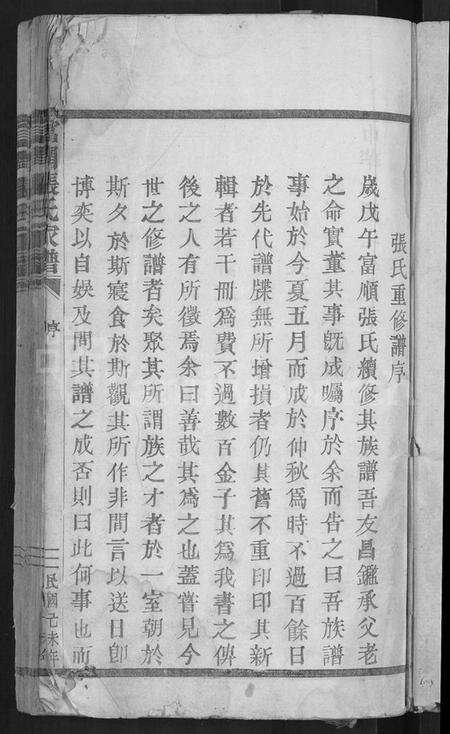 張氏重修譜序
歲戊午富順張氏續修其族譜吾友昌鑑承父老
之命實董其事既成囑序於余而告之曰吾族譜
事始於今夏五月而成於仲秋為時不過百餘日
於先代譜牒無所增損者仍其舊不重印印其新
輯者若干冊為費不過數百金子其為我書之俾
後之人有所徵焉余曰善哉其為之也蓋嘗見今
世之修譜者矣聚其所謂族之才者於一室朝於
斯夕於斯寢食於斯觀其所作非閒言以送日即
博奕以自娛及問其譜之成否則曰此何事也而
張氏家譜
序
民國己未年